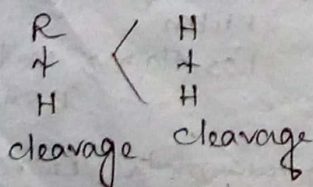 R < H
+ +
H H
cleavage cleavage